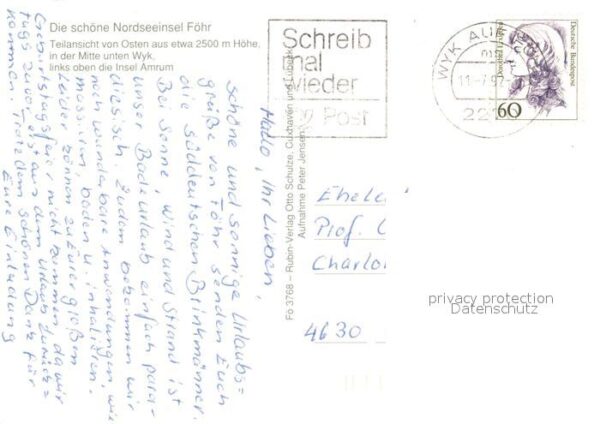 Die schöne Nordseeinsel Föhr
Teilansicht von Osten aus etwa 2500 m Höhe,
in der Mitte unten Wyk,
links oben die Insel Amrum
Schreib
mal
wieder
Post
WYK AUF
11.-7.9
22
Deutsche Bundespost
60
Fö 3768 – Rubin-Verlag Otto Schulze, Cuxhaven und Lübeck
Aufnahme Peter Jensen
Hallo, Ihr Lieben,
schöne und sonnige Urlaubs=
grüße von Föhr senden Euch
die süddeutschen Brinkmänner.
Bei Sonne, Wind und Strand ist
unser Badeurlaub einfach para-
diesisch. Zudem bekommen wir
noch wunderbare Anwendungen, wie
massieren, baden u. inhalieren.
Leider können zu Eurer großen
Geburtstagsfeier nicht kommen da wir
tags zuvor erst aus dem Urlaub zurück=
kommen. Trotzdem schönen Dank für
Eure Einladung
Ehele
Prof.
Charlo
4630
privacy protection
Datenschutz